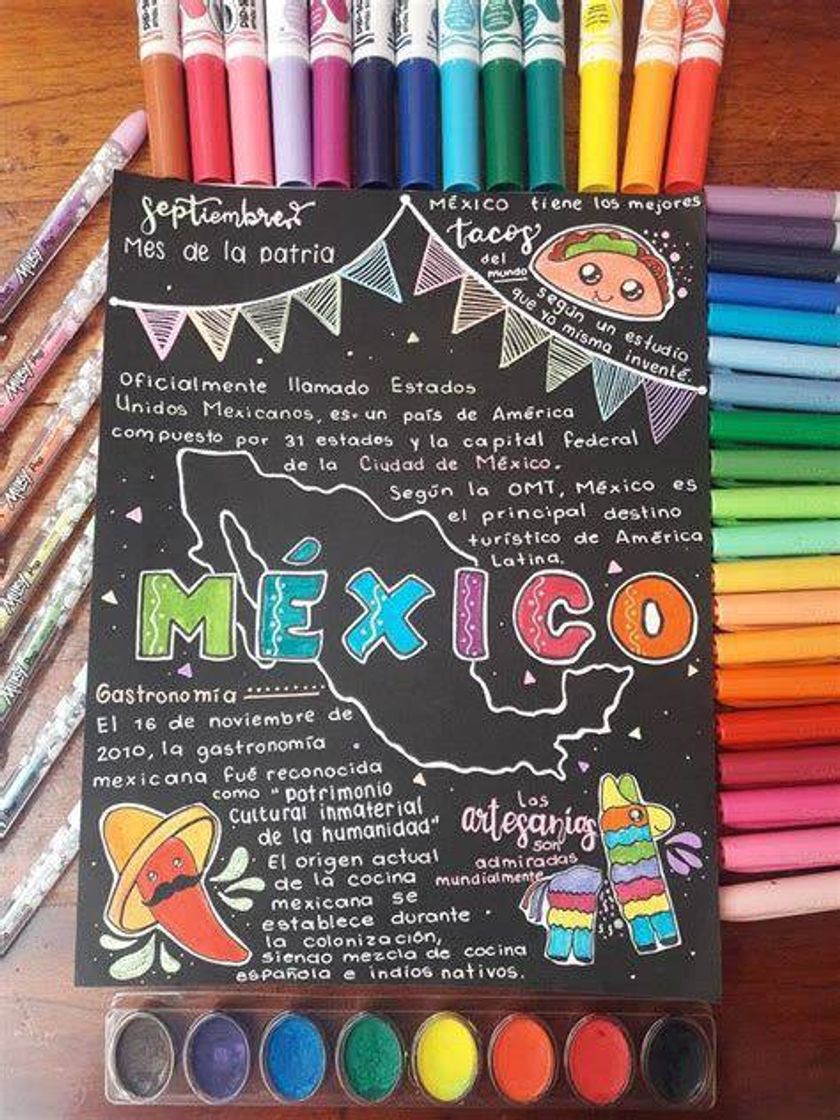 Septiembre
Mes de la patria
MÉXICO tiene los mejores
tacos
del
mundo
según un estudio
que yo misma inventé.
Oficialmente llamado Estados
Unidos Mexicanos, es un país de América
compuesto por 31 estados y la capital federal
de la Ciudad de México.
Según la OMT, México es
el principal destino
turístico de América
Latina.
MÉXICO
Gastronomía
El 16 de noviembre de
2010, la gastronomía
mexicana fué reconocida
como "patrimonio
Cultural inmaterial
de la humanidad"
El origen actual
de la cocina
mexicana se
establece durante
la colonización,
siendo mezcla de cocina
española e indios nativos.
Las
artesanías
son
admiradas
mundialmente
Milky
Milky
Milky
Milky
Milky